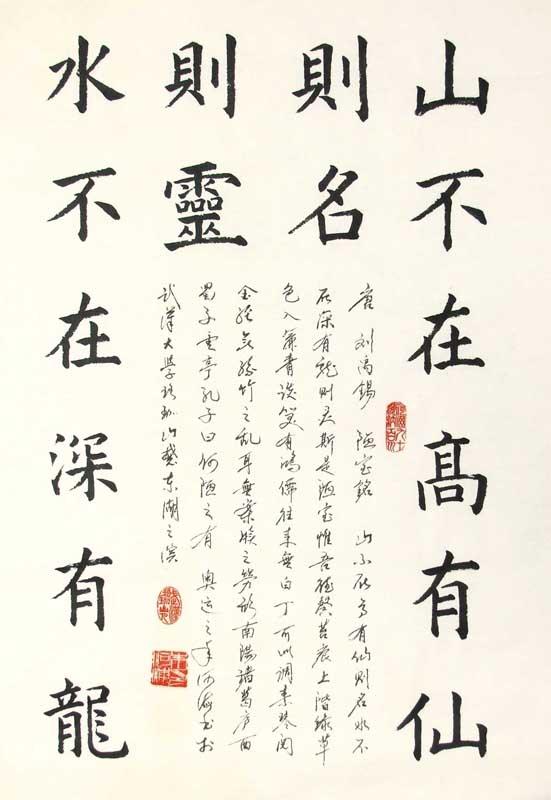 山不在髙有仙
則名
水不在深有龍
則靈
唐 刘禹锡 陋室銘 山不在高有仙则名水不
在深有龙则灵斯是陋室惟吾德馨苔痕上階绿草
色入簾青谈笑有鸿儒往来無白丁可以调素琴阅
金经無丝竹之乱耳無案牍之劳形南陽諸葛庐西
蜀子雲亭孔子曰何陋之有 奥运之年 书于
武漢大学珞珈山麓东湖之滨